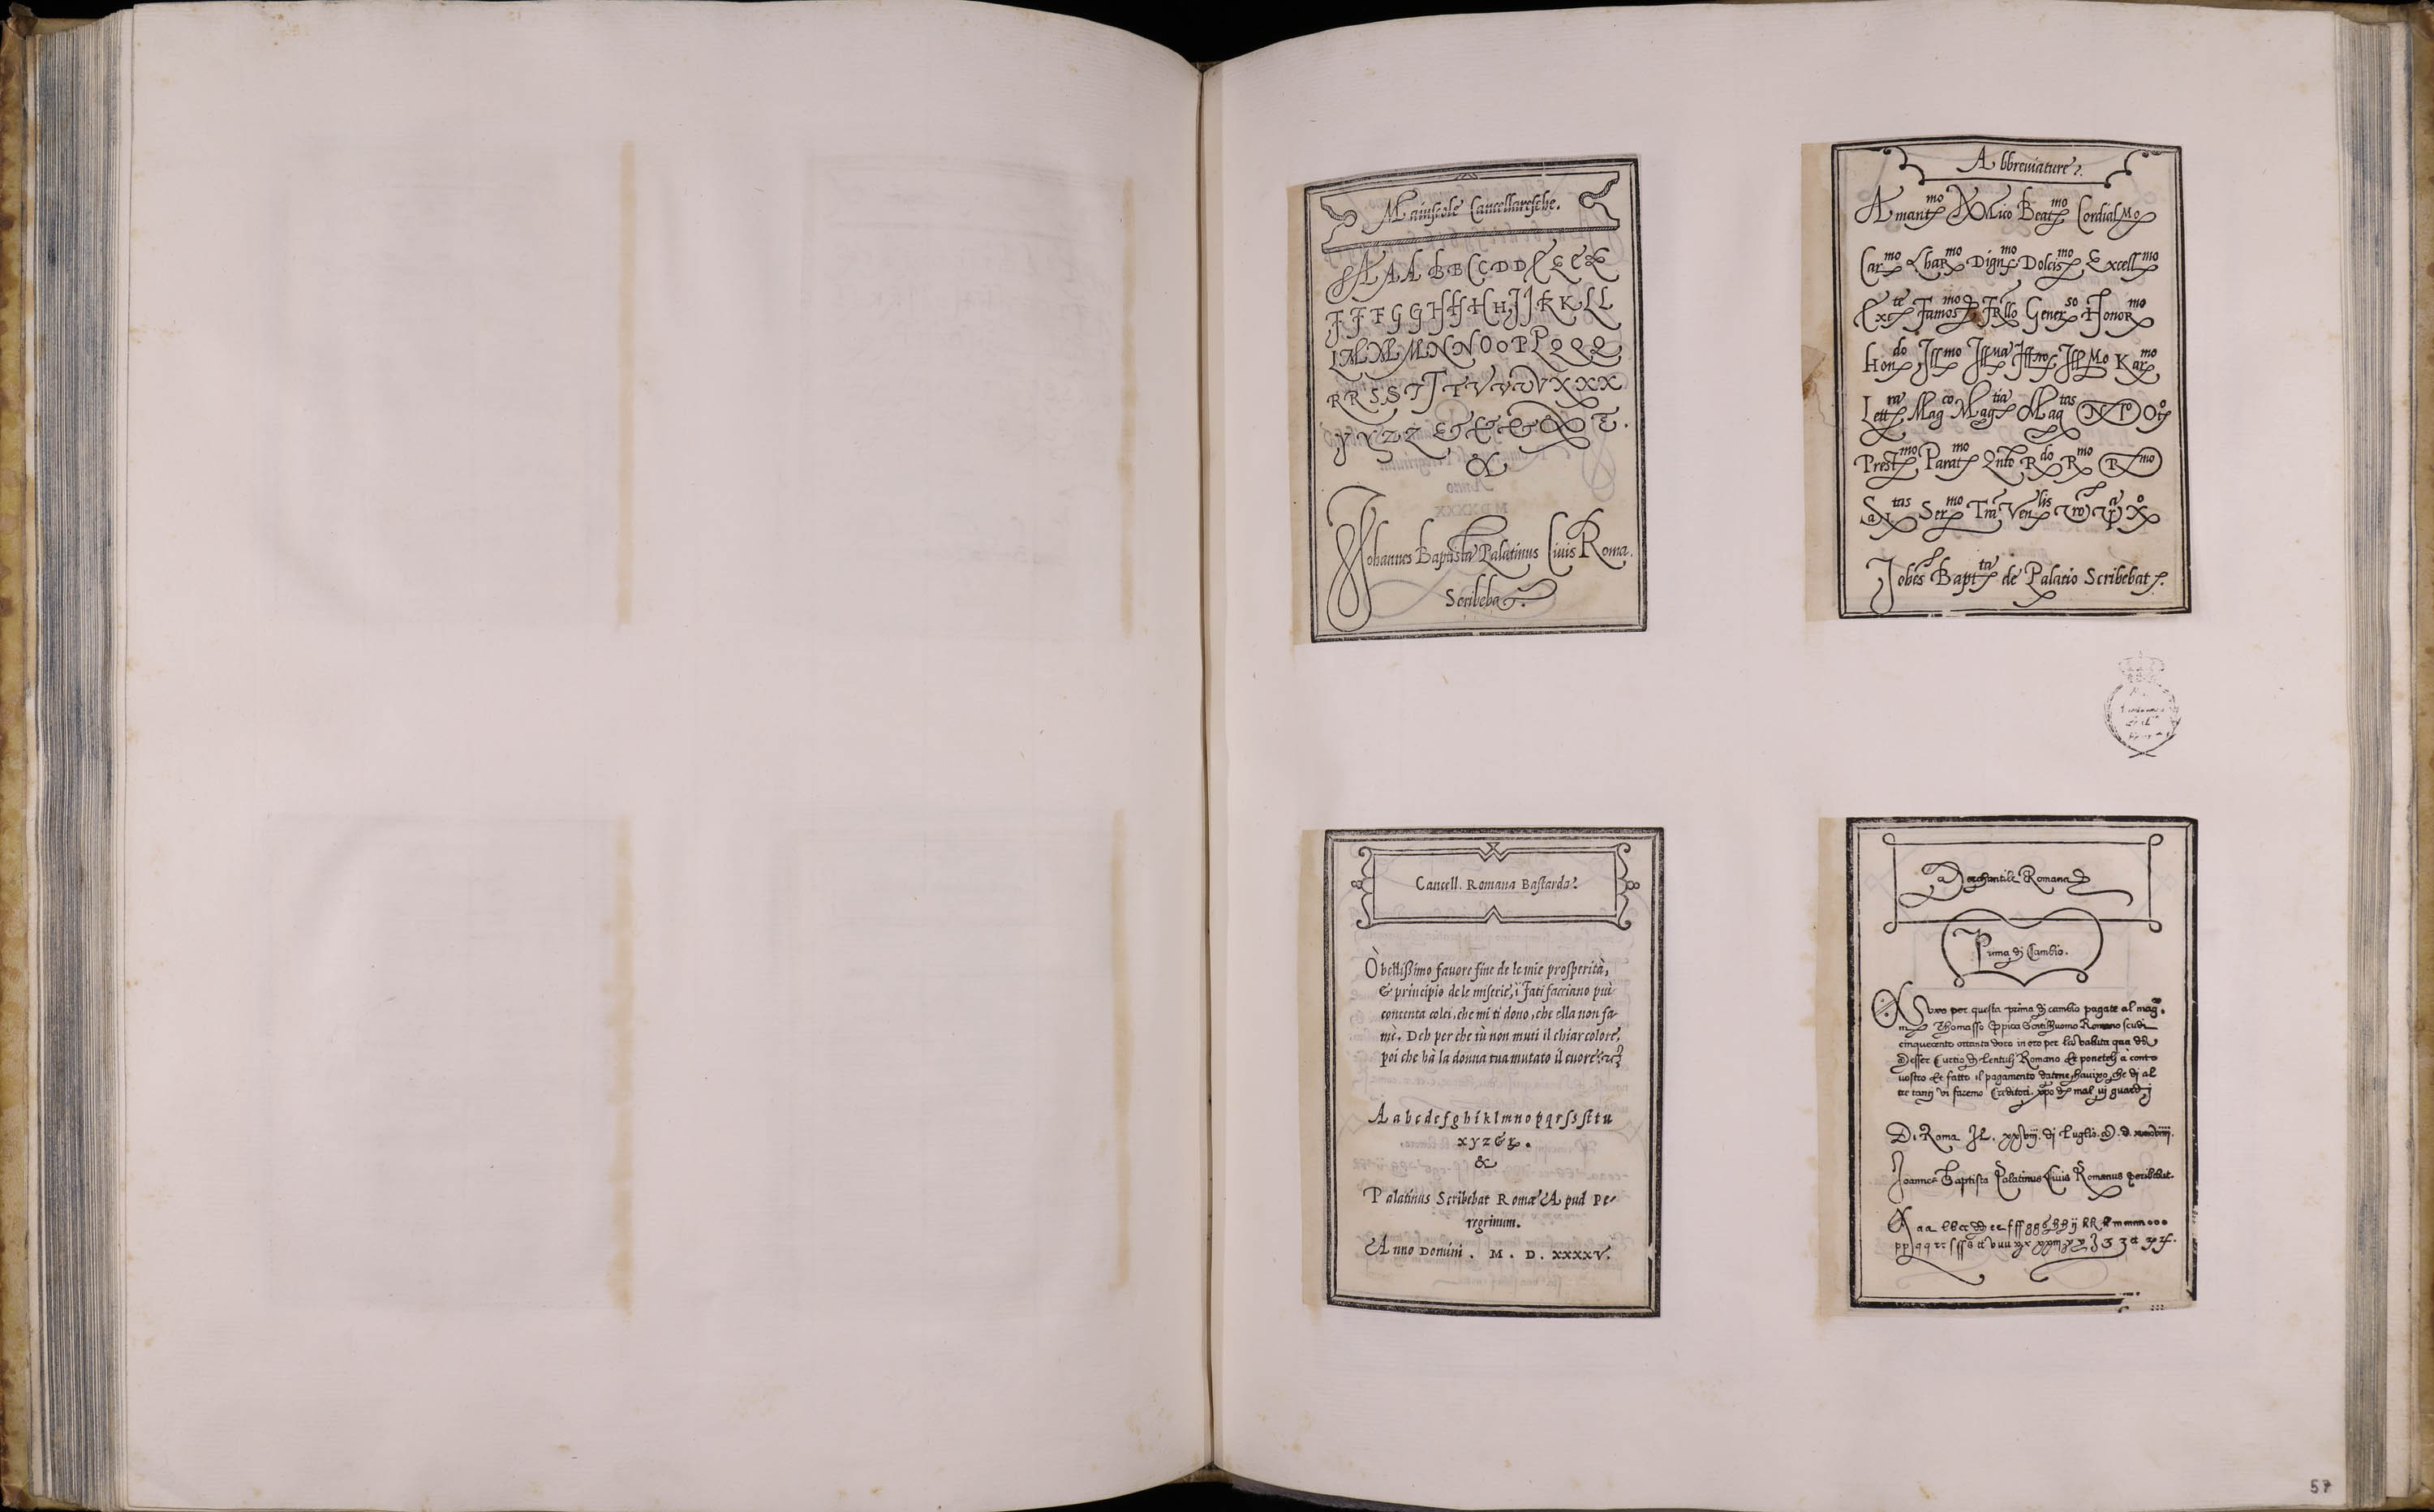 Maiuscole Cancellaresche.
A A A B B C C D D E E E E
F F F G G H H H H J J K K L L
L M M M N N O O P P Q Q Q
R R S S T T T V V V V X X X
Y Y Z Z & & & & &.
&
Johannes Baptista Palatinus Ciuis Roma.
Scribebat.
Abbreviature.
Amant mo Beat mo Cordial Mo
Car mo Dign mo Dolcis mo Excell mo
Ex te Famos mo Gener so Honor mo
Hon do Ill mo Kar mo
Lett ra Mag co Mag tia Mag tas
Prest mo Parat mo R do R mo R mo
S tas Ser mo Ven lis
Johes Bapt ta de Palatio Scribebat.
Cancell. Romana Bastarda.
Ò bellißimo fauore fine de le mie prosperità,
& principio de le miserie, i Fati facciano più
contenta colei, che mi ti dono, che ella non fa
mè. Deh per che tù non muti il chiar colore,
poi che hà la donna tua mutato il cuore?
A a b c d e f g h i k l m n o p q r ſ s ſt t u
x y z & .
&
Palatinus Scribebat Romæ Apud Pe-
regrinum.
Anno Domini . M . D . XXXXV.
Merchantile Romana
Prima di Cambio.
per questa prima di cambio pagate al mag.
Thomasso Gentilhuomo Romano scudi
cinquecento ottanta doro in oro per la valuta qua
Messer Curtio Romano & ponete à conto
vostro & fatto il pagamento che di al
tre tanti vi faremo Creditori. mal vi guardi
Di Roma Il. xxviij. di Luglio.
Joannes Baptista Palatinus Ciuis Romanus scribebat.
57